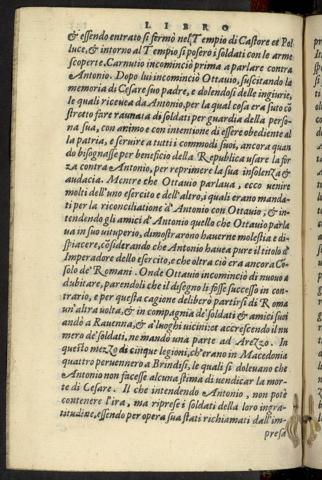 LIBRO
& essendo entrato si fermò nel Tempio di Castore et Pol
luce, & intorno al Tempio si posero i soldati con le arme
scoperte. Carnutio incominciò prima a parlare contra
Antonio. Dopo lui incominciò Ottauio, suscitando la
memoria di Cesare suo padre, e dolendosi delle ingiurie,
le quali riceuea da Antonio, per la qual cosa era suto cõ
stretto fare raunata di soldati per guardia della perso
na sua, con animo e con intentione di essere obediente al
la patria, e seruire a tutti i commodi suoi, ancora quan
do bisognasse per beneficio della Republica usare la for
za contra Antonio, per reprimere la sua insolenza &
audacia. Mentre che Ottauio parlaua, ecco uenire
molti dell'uno esercito e dell'altro, i quali erano manda-
ti per la riconciliatione d'Antonio con Ottauio, & in-
tendendo gli amici d'Antonio quello che Ottauio parla
ua in suo uituperio, dimostrarono hauerne molestia e di-
spiacere, cõsiderando che Antonio hauea pure il titolo d'
Imperadore dello esercito, e che oltra ciò era ancora Co-
solo de' Romani. Onde Ottauio incominciò di nuouo a
dubitare, parendoli che il disegno li fosse successo in con-
trario, e per questa cagione deliberò partirsi di Roma
un'altra uolta, & in compagnia de' soldati & amici suoi
andò a Rauenna, & a' luoghi uicini: et accrescendo il nu
mero de' soldati, ne mandò una parte ad Arezzo. In
questo mezzo di cinque legioni, ch'erano in Macedonia
quattro peruennero a Brindisi, le quali si doleuano che
Antonio non facesse alcuna stima di uendicar la mor-
te di Cesare. Il che intendendo Antonio, non potè
contenere l'ira, ma riprese i soldati della loro ingra-
titudine, essendo per opera sua stati richiamati dall'im-
presa